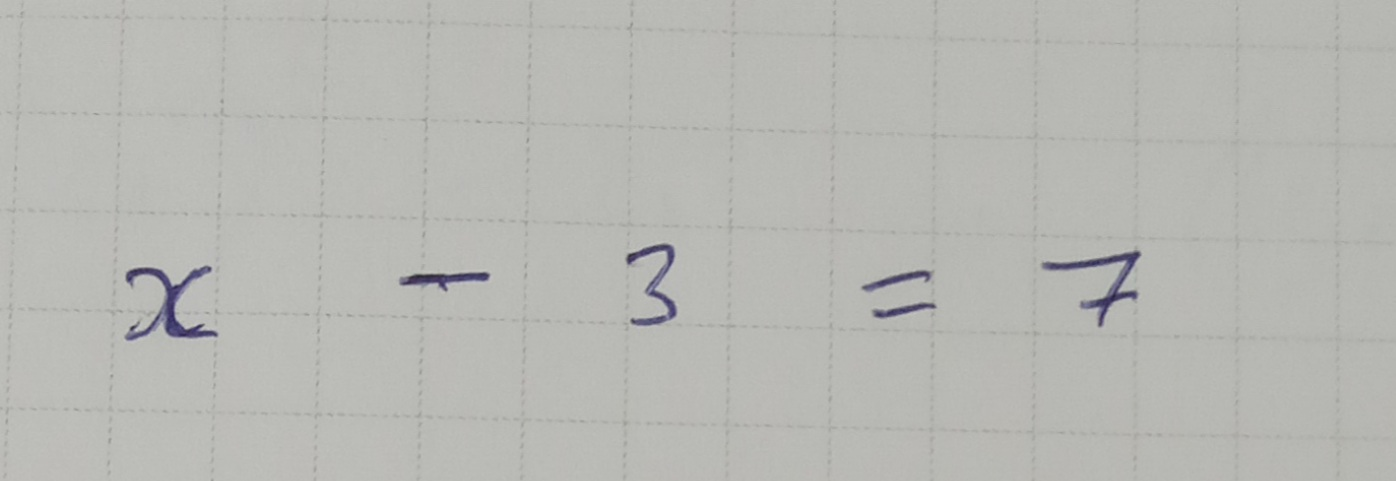 x - 3 = 7